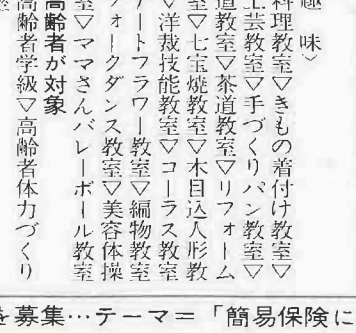 趣　味〉
料理教室▽きもの着付け教室▽
工芸教室▽手づくりパン教室▽
道教室▽茶道教室▽リフォーム
室▽七宝焼教室▽木目込人形教
▽洋裁技能教室▽コーラス教室
ートフラワー教室▽編物教室
フォークダンス教室▽美容体操
室▽ママさんバレーボール教室
高齢者が対象
高齢者学級▽高齢者体力づくり
を募集…テーマ＝「簡易保険に